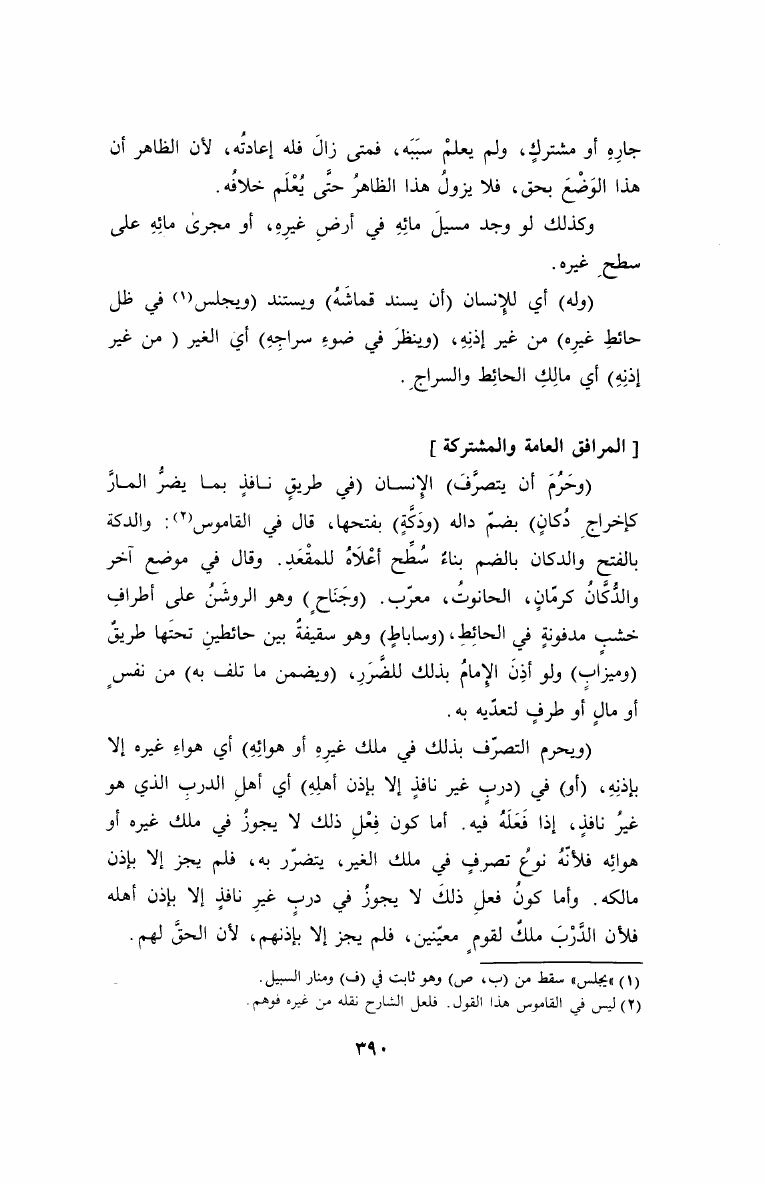 جارِهِ أو مشتركٍ، ولم يعلمْ سبَبَه، فمتى زالَ فله إعادتُه، لأن الظاهر أن
هذا الوَضْعَ بحق، فلا يزولُ هذا الظاهرُ حتَّى يُعْلَم خلافُه.
وكذلك لو وجد مسيلَ مائِهِ في أرضِ غيرِهِ، أو مجرىٰ مائِهِ على
سطحِ غيره.
(وله) أي للإنسان (أن يسند قماشَهُ) ويستند (ويجلس(١) في ظل
حائطِ غيرِه) من غير إذنِهِ، (وينظرَ في ضوءِ سراجِهِ) أي الغير ( من غير
إذنِهِ) أي مالِكِ الحائط والسراجِ.
[ المرافق العامة والمشتركة ]
(وحَرُمَ أن يتصرَّفَ) الإنسان (في طريقٍ نافذٍ بما يضرُّ المارَّ
كإخراجِ دُكانٍ) بضمّ داله (ودَكَّةٍ) بفتحها، قال في القاموس(٢): والدكة
بالفتح والدكان بالضم بناءٌ سُطِّح أعْلَاهُ للمقْعَدِ. وقال في موضع آخر
والدُّكَّانُ كرمّانٍ، الحانوتُ، معرّب. (وجَنَاحٍ) وهو الروشَنُ على أطرافِ
خشبٍ مدفونةٍ في الحائِطِ، (وساباطٍ) وهو سقيفةٌ بين حائطينِ تحتَها طريقٌ
(وميزابٍ) ولو أذِنَ الإمامُ بذلك للضَّرَرِ، (ويضمن ما تلف به) من نفسٍ
أو مالٍ أو طرفٍ لتعدّيه به.
(ويحرم التصرّف بذلك في ملك غيرِهِ أو هوائِهِ) أي هواءِ غيره إلا
بإذنِهِ، (أو) في (دربٍ غير نافذٍ إلا بإذن أهلِهِ) أي أهلِ الدربِ الذي هو
غيرُ نافذٍ، إذا فَعَلَهُ فيه. أما كون فِعْلِ ذلك لا يجوزُ في ملك غيره أو
هوائِه فلأنّهُ نوعُ تصرفٍ في ملك الغير، يتضرّر به، فلم يجز إلا بإذن
مالكه. وأما كونُ فعلِ ذلكَ لا يجوزُ في دربٍ غيرِ نافذٍ إلا بإذن أهله
فلأن الدَّرْبَ ملكٌ لقومٍ معيّنين، فلم يجز إلا بإذنهم، لأن الحقَّ لهم.
(١) «يجلس» سقط من (ب، ص) وهو ثابت في (ف) ومنار السبيل.
(٢) ليس في القاموس هذا القول. فلعل الشارح نقله من غيره فوهم.
٣٩٠